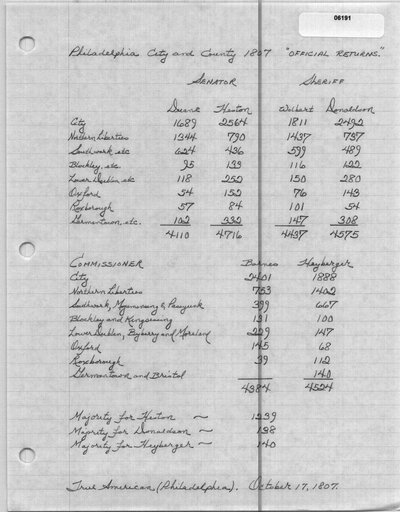 06191
Philadelphia City and County 1807 "OFFICIAL RETURNS."
SENATOR SHERIFF
Duane Heston Wilbert Donaldson
City 1689 2564 1811 2492
Northern Liberties 1344 790 1437 737
Southwark, etc 624 436 599 489
Blockley, etc. 95 133 116 122
Lower Dublin etc 118 252 150 280
Oxford 54 152 76 143
Roxborough 57 84 101 54
Germantown, etc. 102 332 147 308
4110 4716 4437 4575
COMMISSIONER Barnes Heyberger
City 2401 1888
Northern Liberties 753 1402
Southwark, Moyamensing & Passyunk 399 667
Blockley and Kingsessing 131 100
Lower Dublin, Byberry and Moreland 229 147
Oxford 145 68
Roxborough 39 112
Germantown and Bristol 140
4384 4524
Majority for Heston ~ 1239
Majority for Donaldson ~ 138
Majority for Heyberger ~ 140
True American (Philadelphia). October 17, 1807.